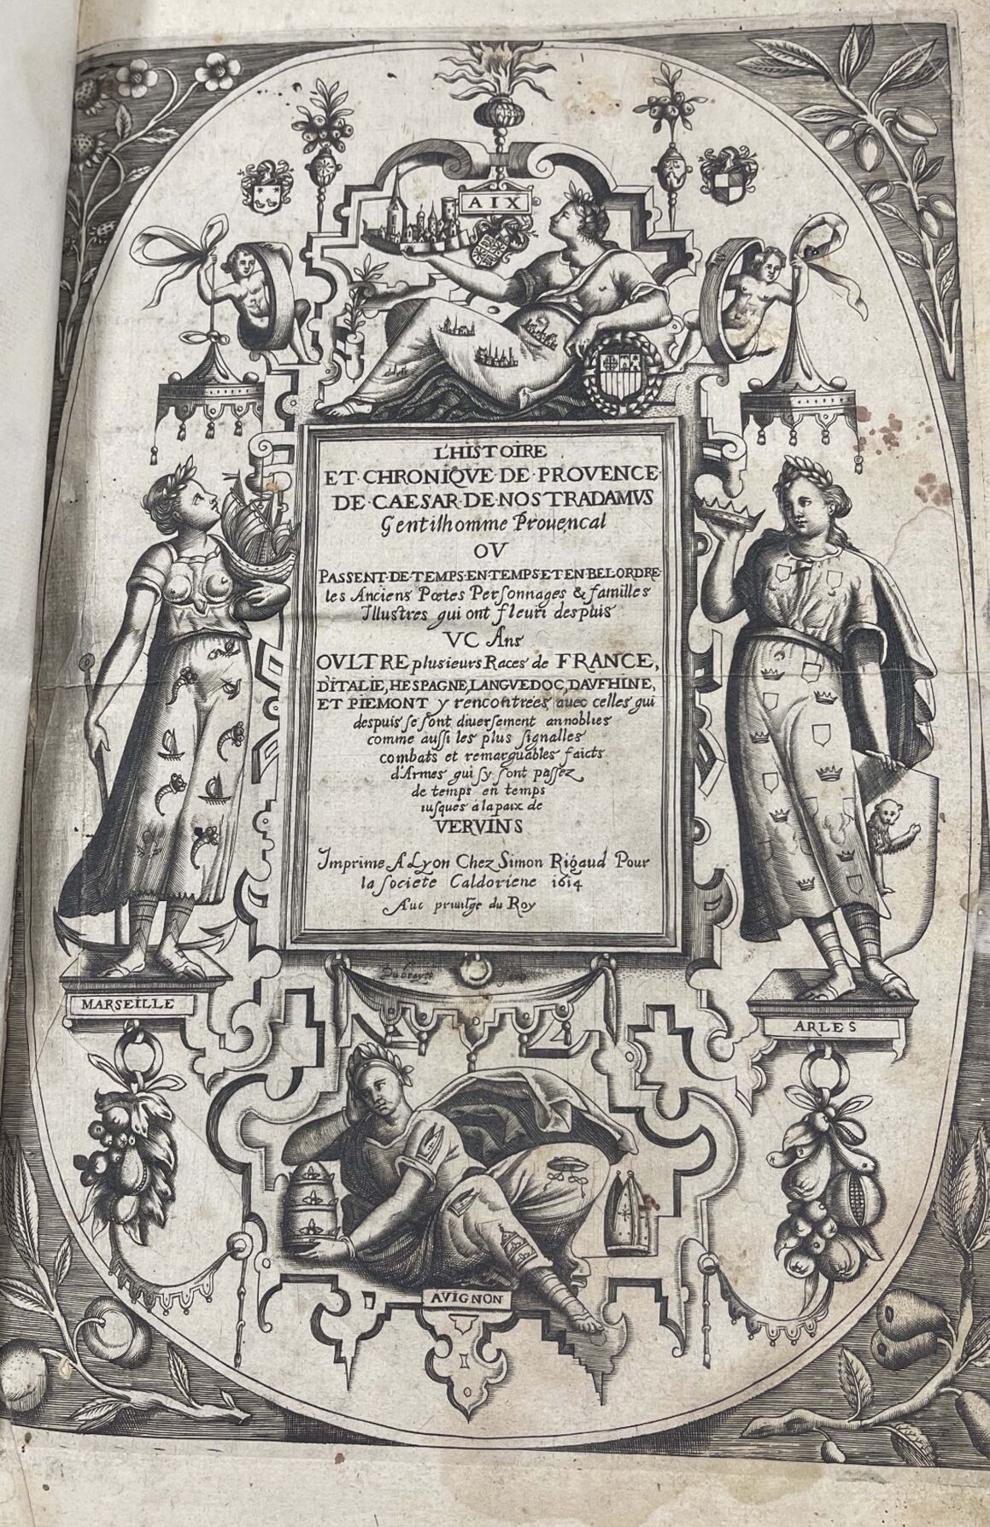 AIX
L'HISTOIRE
ET·CHRONIQVE·DE·PROVENCE·
DE·CAESAR·DE·NOSTRADAMVS
Gentilhomme Prouençal
OV
PASSENT·DE·TEMPS·EN·TEMPS·ET·EN·BEL·ORDRE·
les Anciens Pœtes Perſonnages & familles
Illuſtres qui ont fleuri despuis
VC Ans
OVLTRE plusieurs Races de FRANCE,
D'ITALIE, HESPAGNE, LANGVEDOC, DAVFHINE,
ET PIEMONT y rencontrées auec celles qui
despuis ſe ſont diuerſement annoblies
comme auſſi les plus ſignalles
combats et remarquables faicts
d'Armes qui ſy ſont paſſez
de temps en temps
iusques a la paix de
VERVINS
Imprime A Lyon Chez Simon Rigaud Pour
la ſociete Caldoriene 1614
Auc priuilge du Roy
MARSEILLE
ARLES
AVIGNON